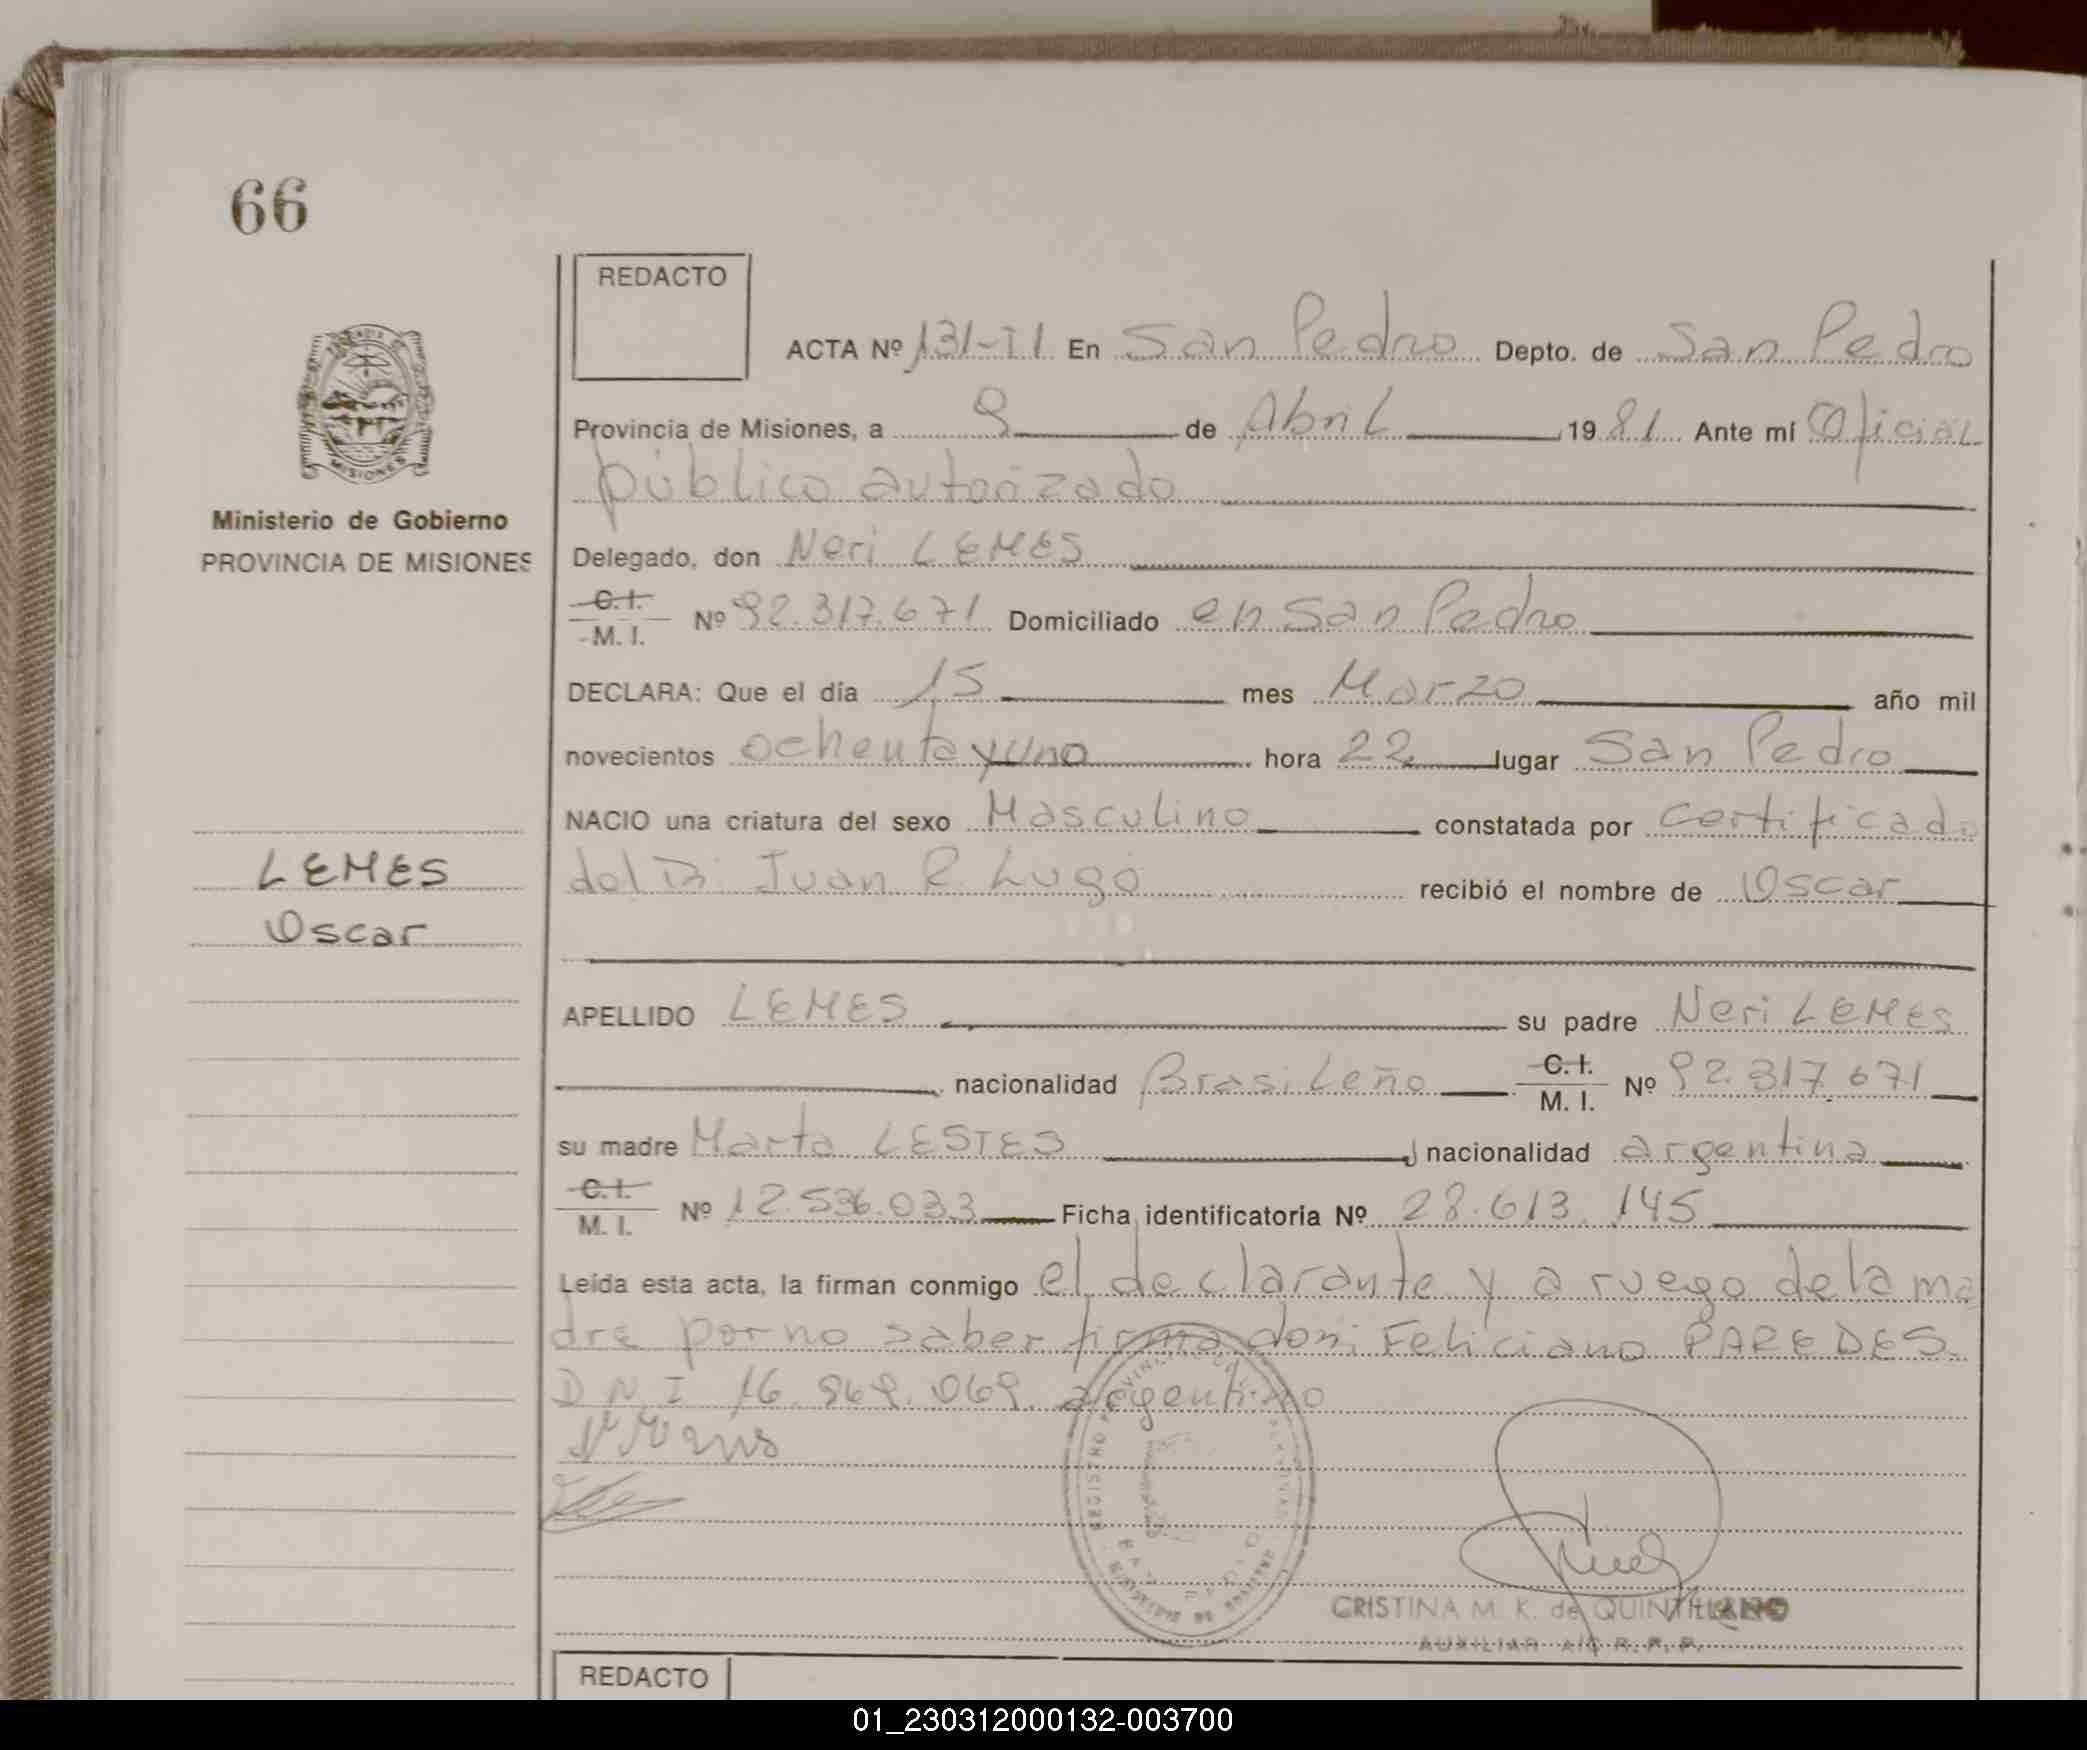 66
REDACTO
ACTA Nº 131-II En San Pedro Depto. de San Pedro
Provincia de Misiones, a 9 de Abril 1981 Ante mí Oficial
público autorizado
Ministerio de Gobierno
PROVINCIA DE MISIONES
Delegado, don Neri LEMES
C. I.
M. I. Nº 92.317.671 Domiciliado en San Pedro
DECLARA: Que el día 15 mes Marzo año mil
novecientos ochenta y uno hora 22 lugar San Pedro
NACIO una criatura del sexo Masculino constatada por certificado
del Dr. Juan R. Lugo recibió el nombre de Oscar
LEMES
Oscar
APELLIDO LEMES su padre Neri LEMES
nacionalidad Brasileño C. I.
M. I. Nº 92.317.671
su madre Marta LESTES nacionalidad argentina
C. I.
M. I. Nº 12.536.033 Ficha identificatoria Nº 28.613.145
Leída esta acta, la firman conmigo el declarante y a ruego de la ma
dre por no saber firma don: Feliciano PAREDES
D N I 16.969.069. argentino
CRISTINA M. K. de QUINTILIANO
AUXILIAR A/C R. P. P.
REDACTO
01_230312000132-003700